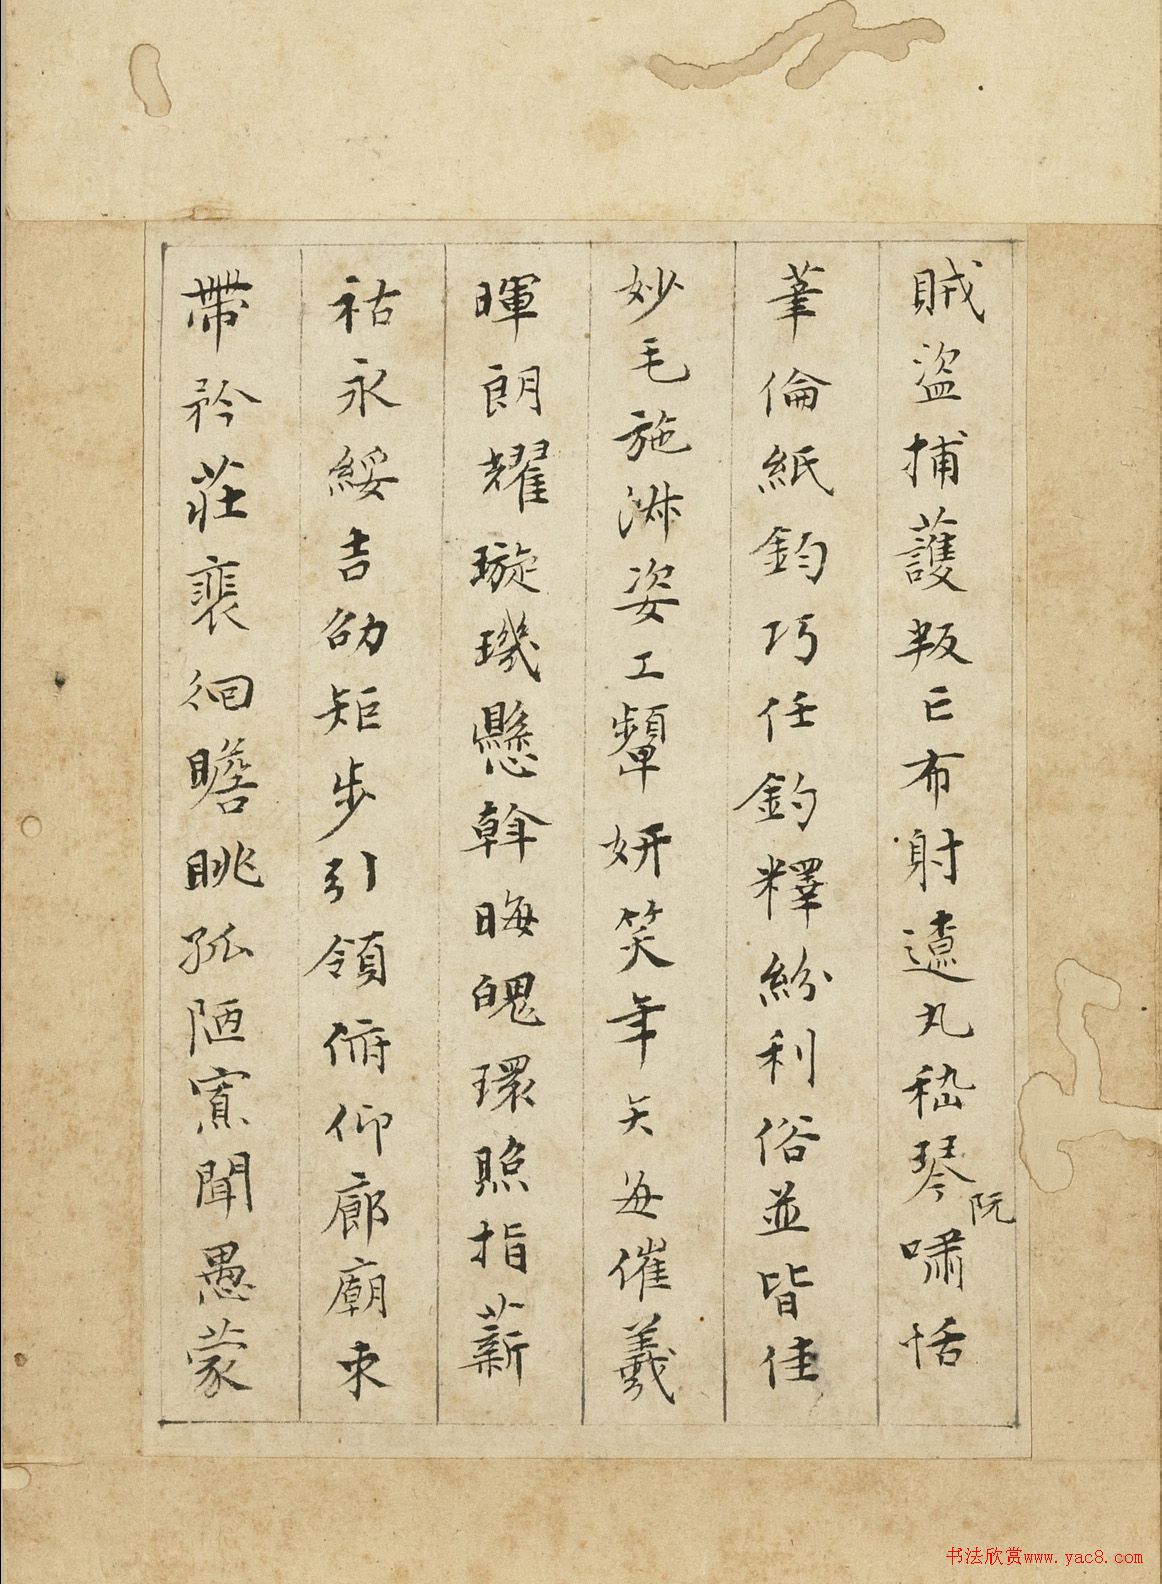 賊盜捕護叛亡布射遼丸嵇琴阮嘯恬
筆倫紙鈞巧任釣釋紛利俗並皆佳
妙毛施淑姿工顰妍笑年矢每催羲
暉朗耀璇璣懸斡晦魄環照指薪
祜永綏吉劭矩步引領俯仰廊廟束
帶矜莊裴徊瞻眺孤陋寡聞愚蒙
书法欣赏www.yac8.com